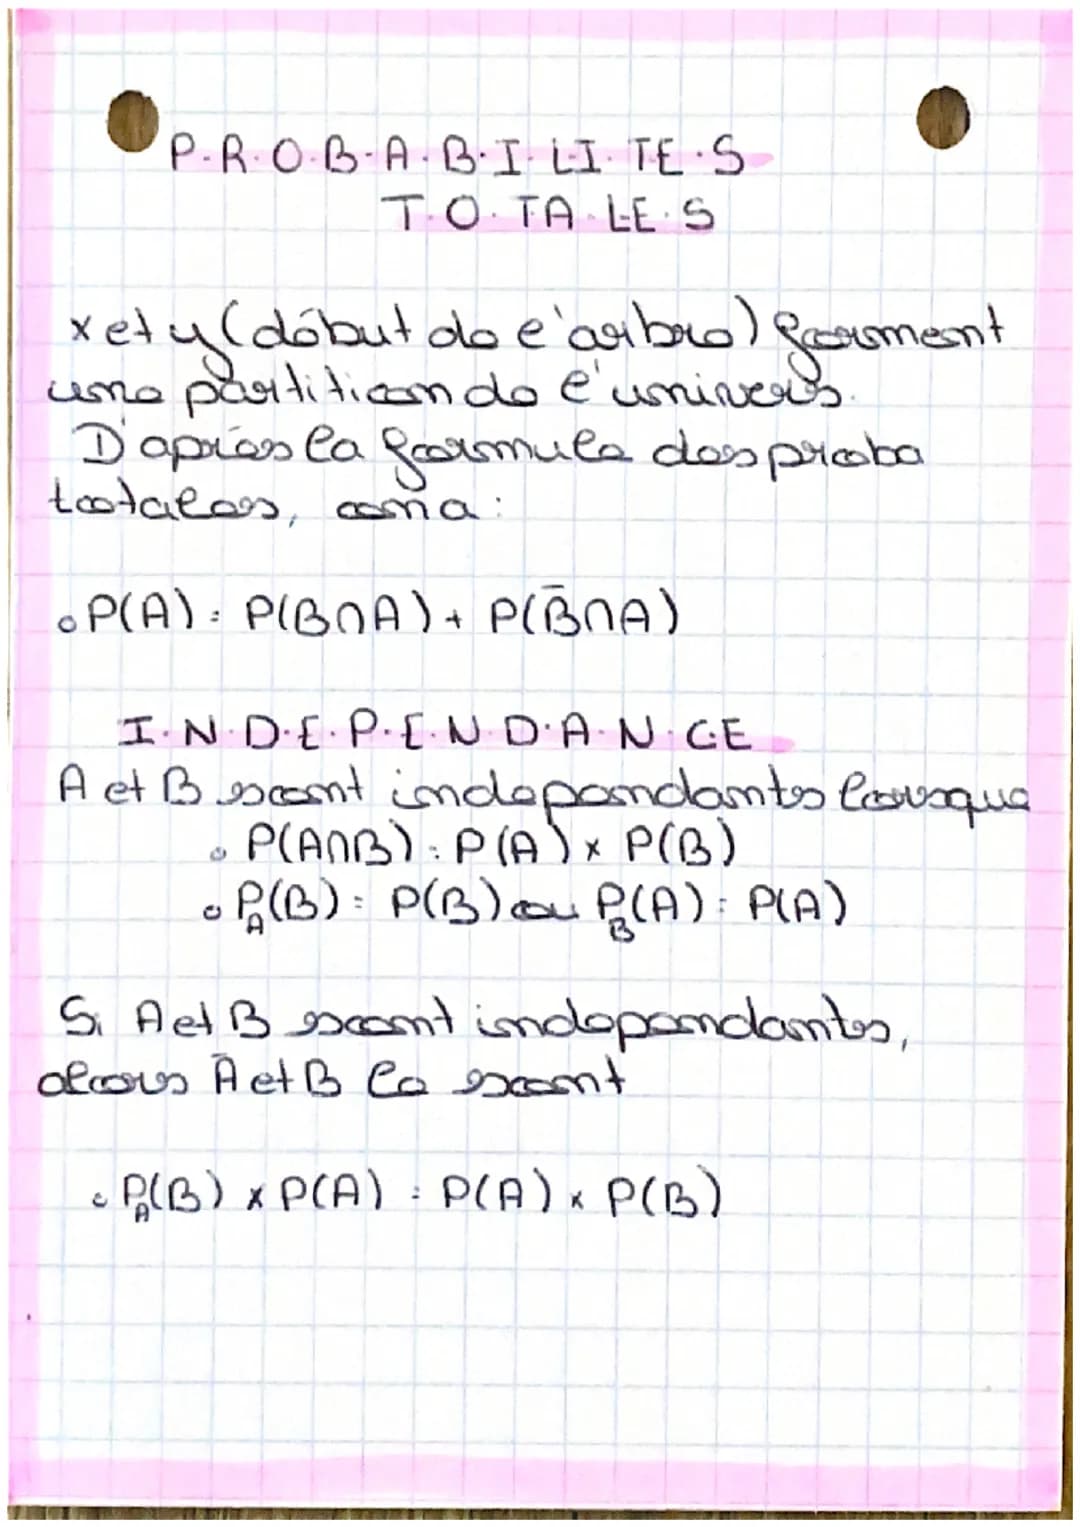 P.R.O.B.A.B.I.LI.TE.S
T.O.TA.LE.S
x et y (début de l'arbre) forment
une partition de l'univers.
D'après la formule des proba
totales, on a :
• P(A) = P(B∩A) + P(B̄∩A)
I.N.D.E.P.E.N.D.A.N.CE
A et B sont indépendants lorsque
• P(A∩B) = P(A) x P(B)
• P_A(B) = P(B) ou P_B(A) = P(A)
Si A et B sont indépendantes,
alors Ā et B le sont
• P_A(B) x P(A) = P(A) x P(B)